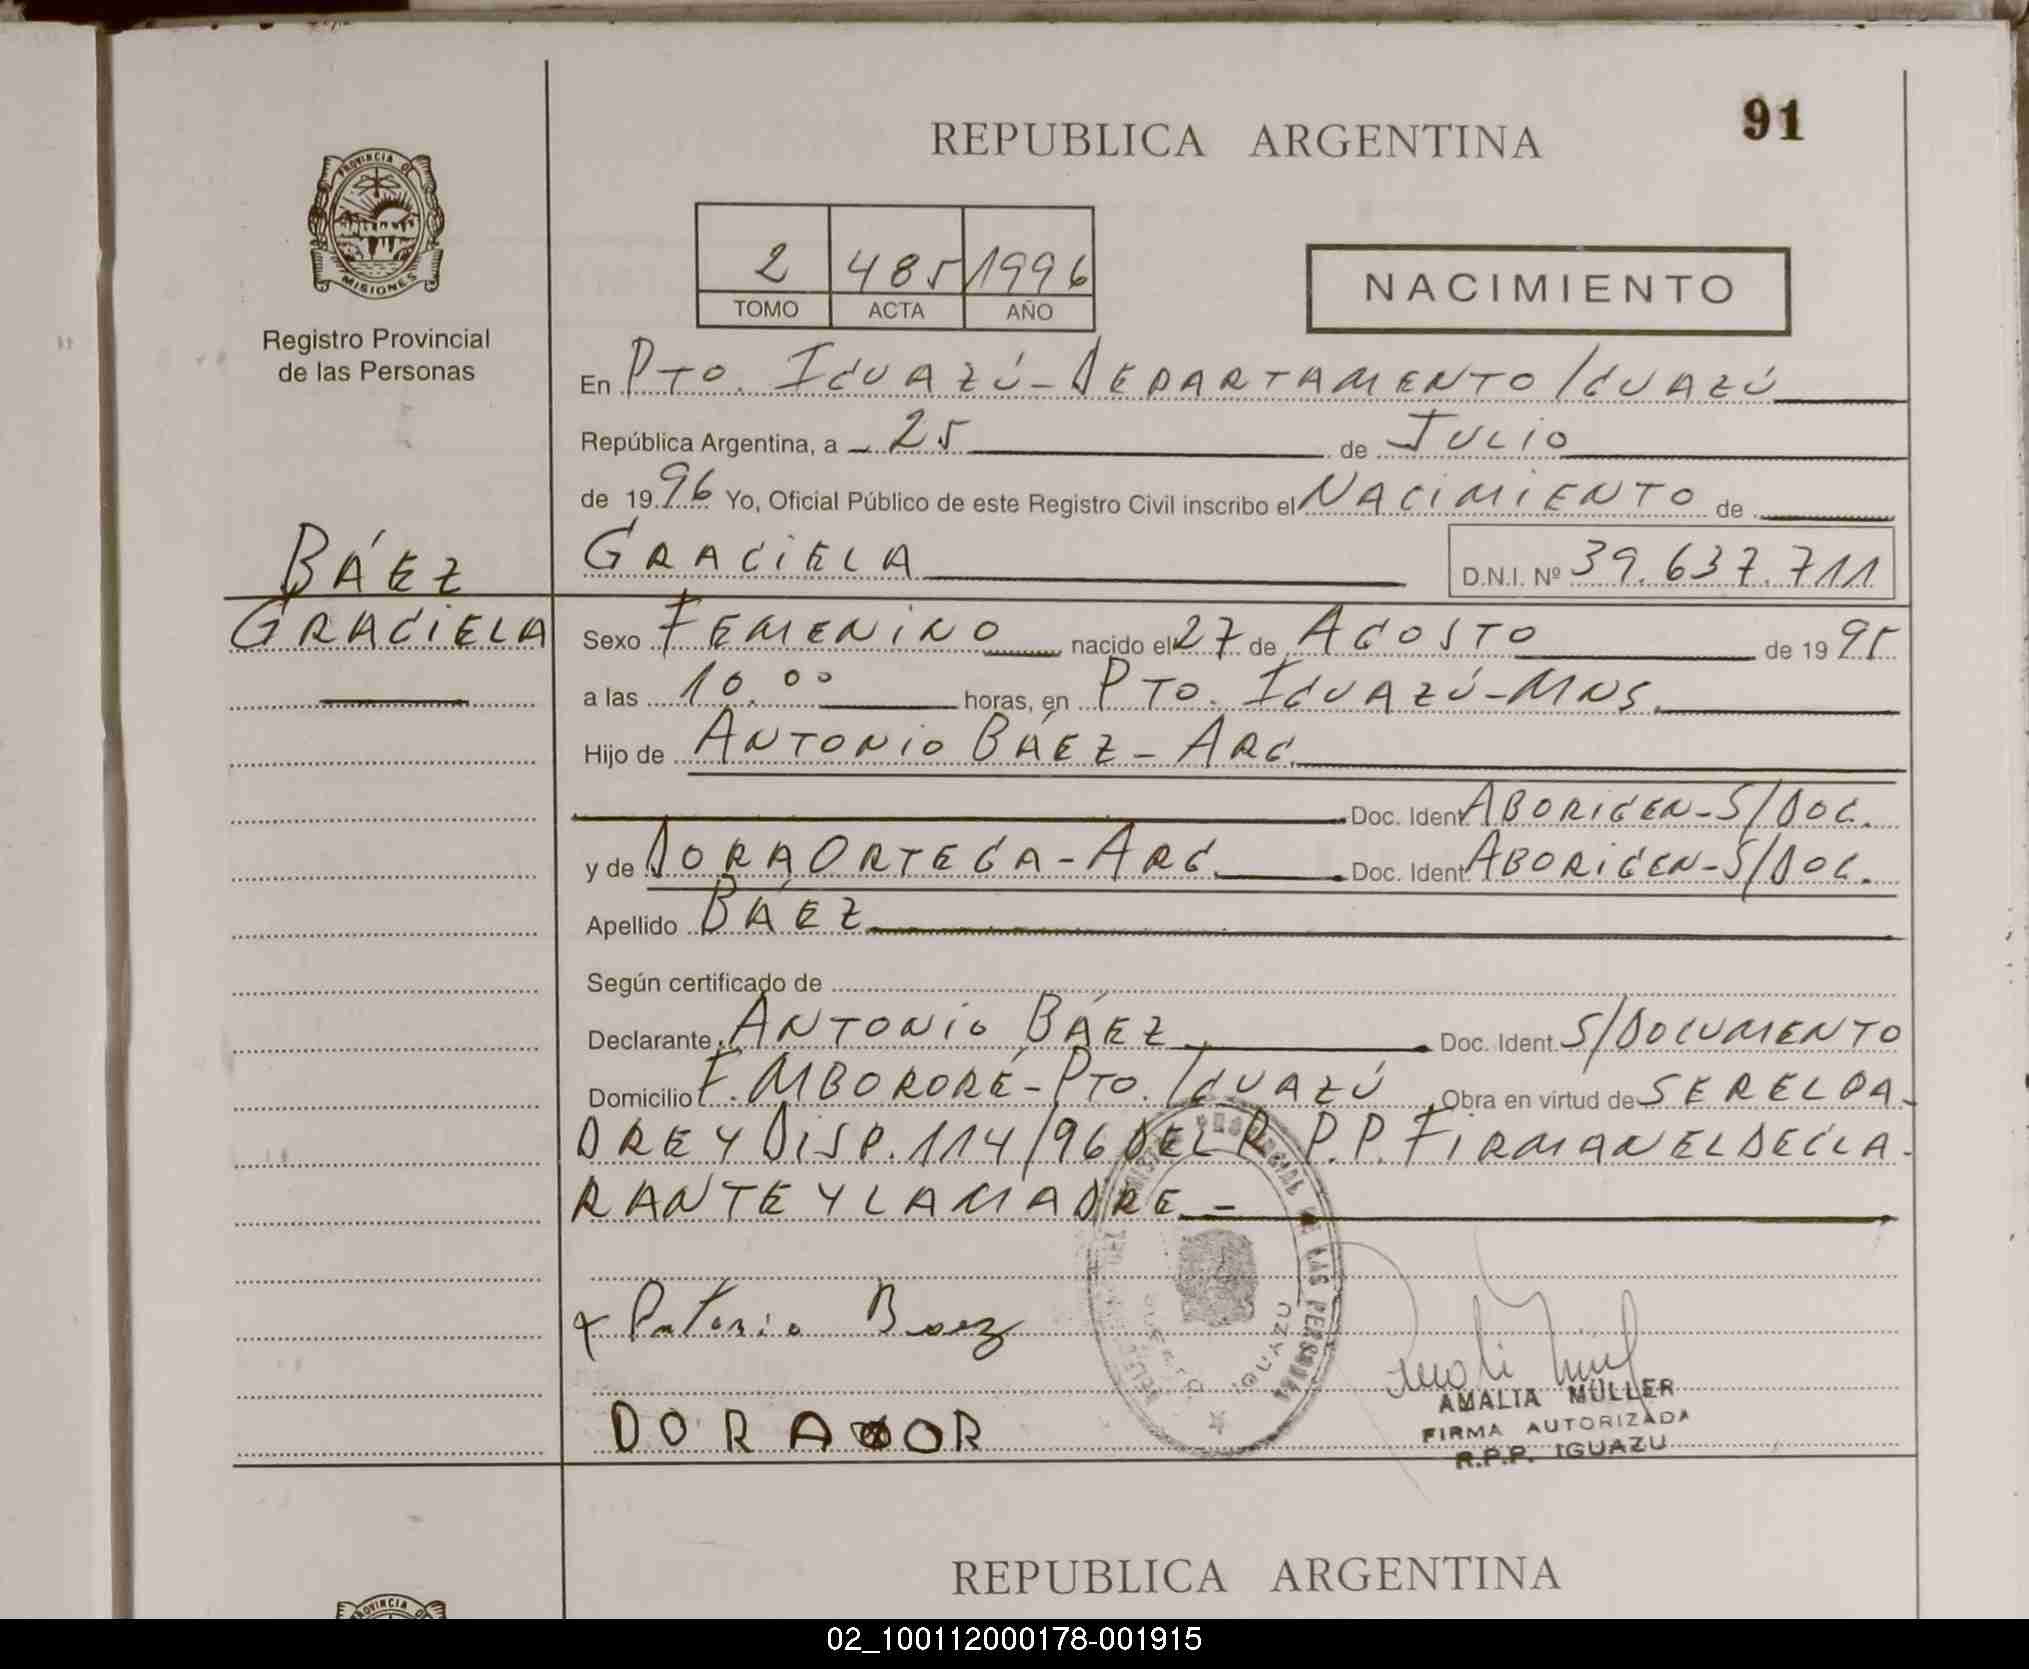 91
REPUBLICA ARGENTINA
PROVINCIA DE
MISIONES
Registro Provincial
de las Personas
2 485 1996
TOMO ACTA AÑO
NACIMIENTO
En PTO. IGUAZÚ - DEPARTAMENTO IGUAZÚ
República Argentina, a - 25 de JULIO
de 1996 Yo, Oficial Público de este Registro Civil inscribo el NACIMIENTO de
BÁEZ
GRACIELA
GRACIELA D.N.I. Nº 39.637.711
Sexo FEMENINO nacido el 27 de AGOSTO de 1995
a las 10.00 horas, en PTO. IGUAZÚ - MNS.
Hijo de ANTONIO BÁEZ - ARG.
Doc. Ident. ABORIGEN - S/DOC.
y de DORA ORTEGA - ARG. Doc. Ident. ABORIGEN - S/DOC.
Apellido BÁEZ
Según certificado de
Declarante ANTONIO BÁEZ Doc. Ident. S/DOCUMENTO
Domicilio F. MBORORÉ - PTO. IGUAZÚ Obra en virtud de SER EL PA-
DRE Y DISP. 114/96 DEL R.P.P. FIRMAN EL DECLA-
RANTE Y LA MADRE. -
PROVINCIAL DE LAS PERSONAS
PUERTO IGUAZU
Baez
DORA OR
AMALIA MÜLLER
FIRMA AUTORIZADA
R.P.P. IGUAZU
REPUBLICA ARGENTINA
PROVINCIA DE
02_100112000178-001915